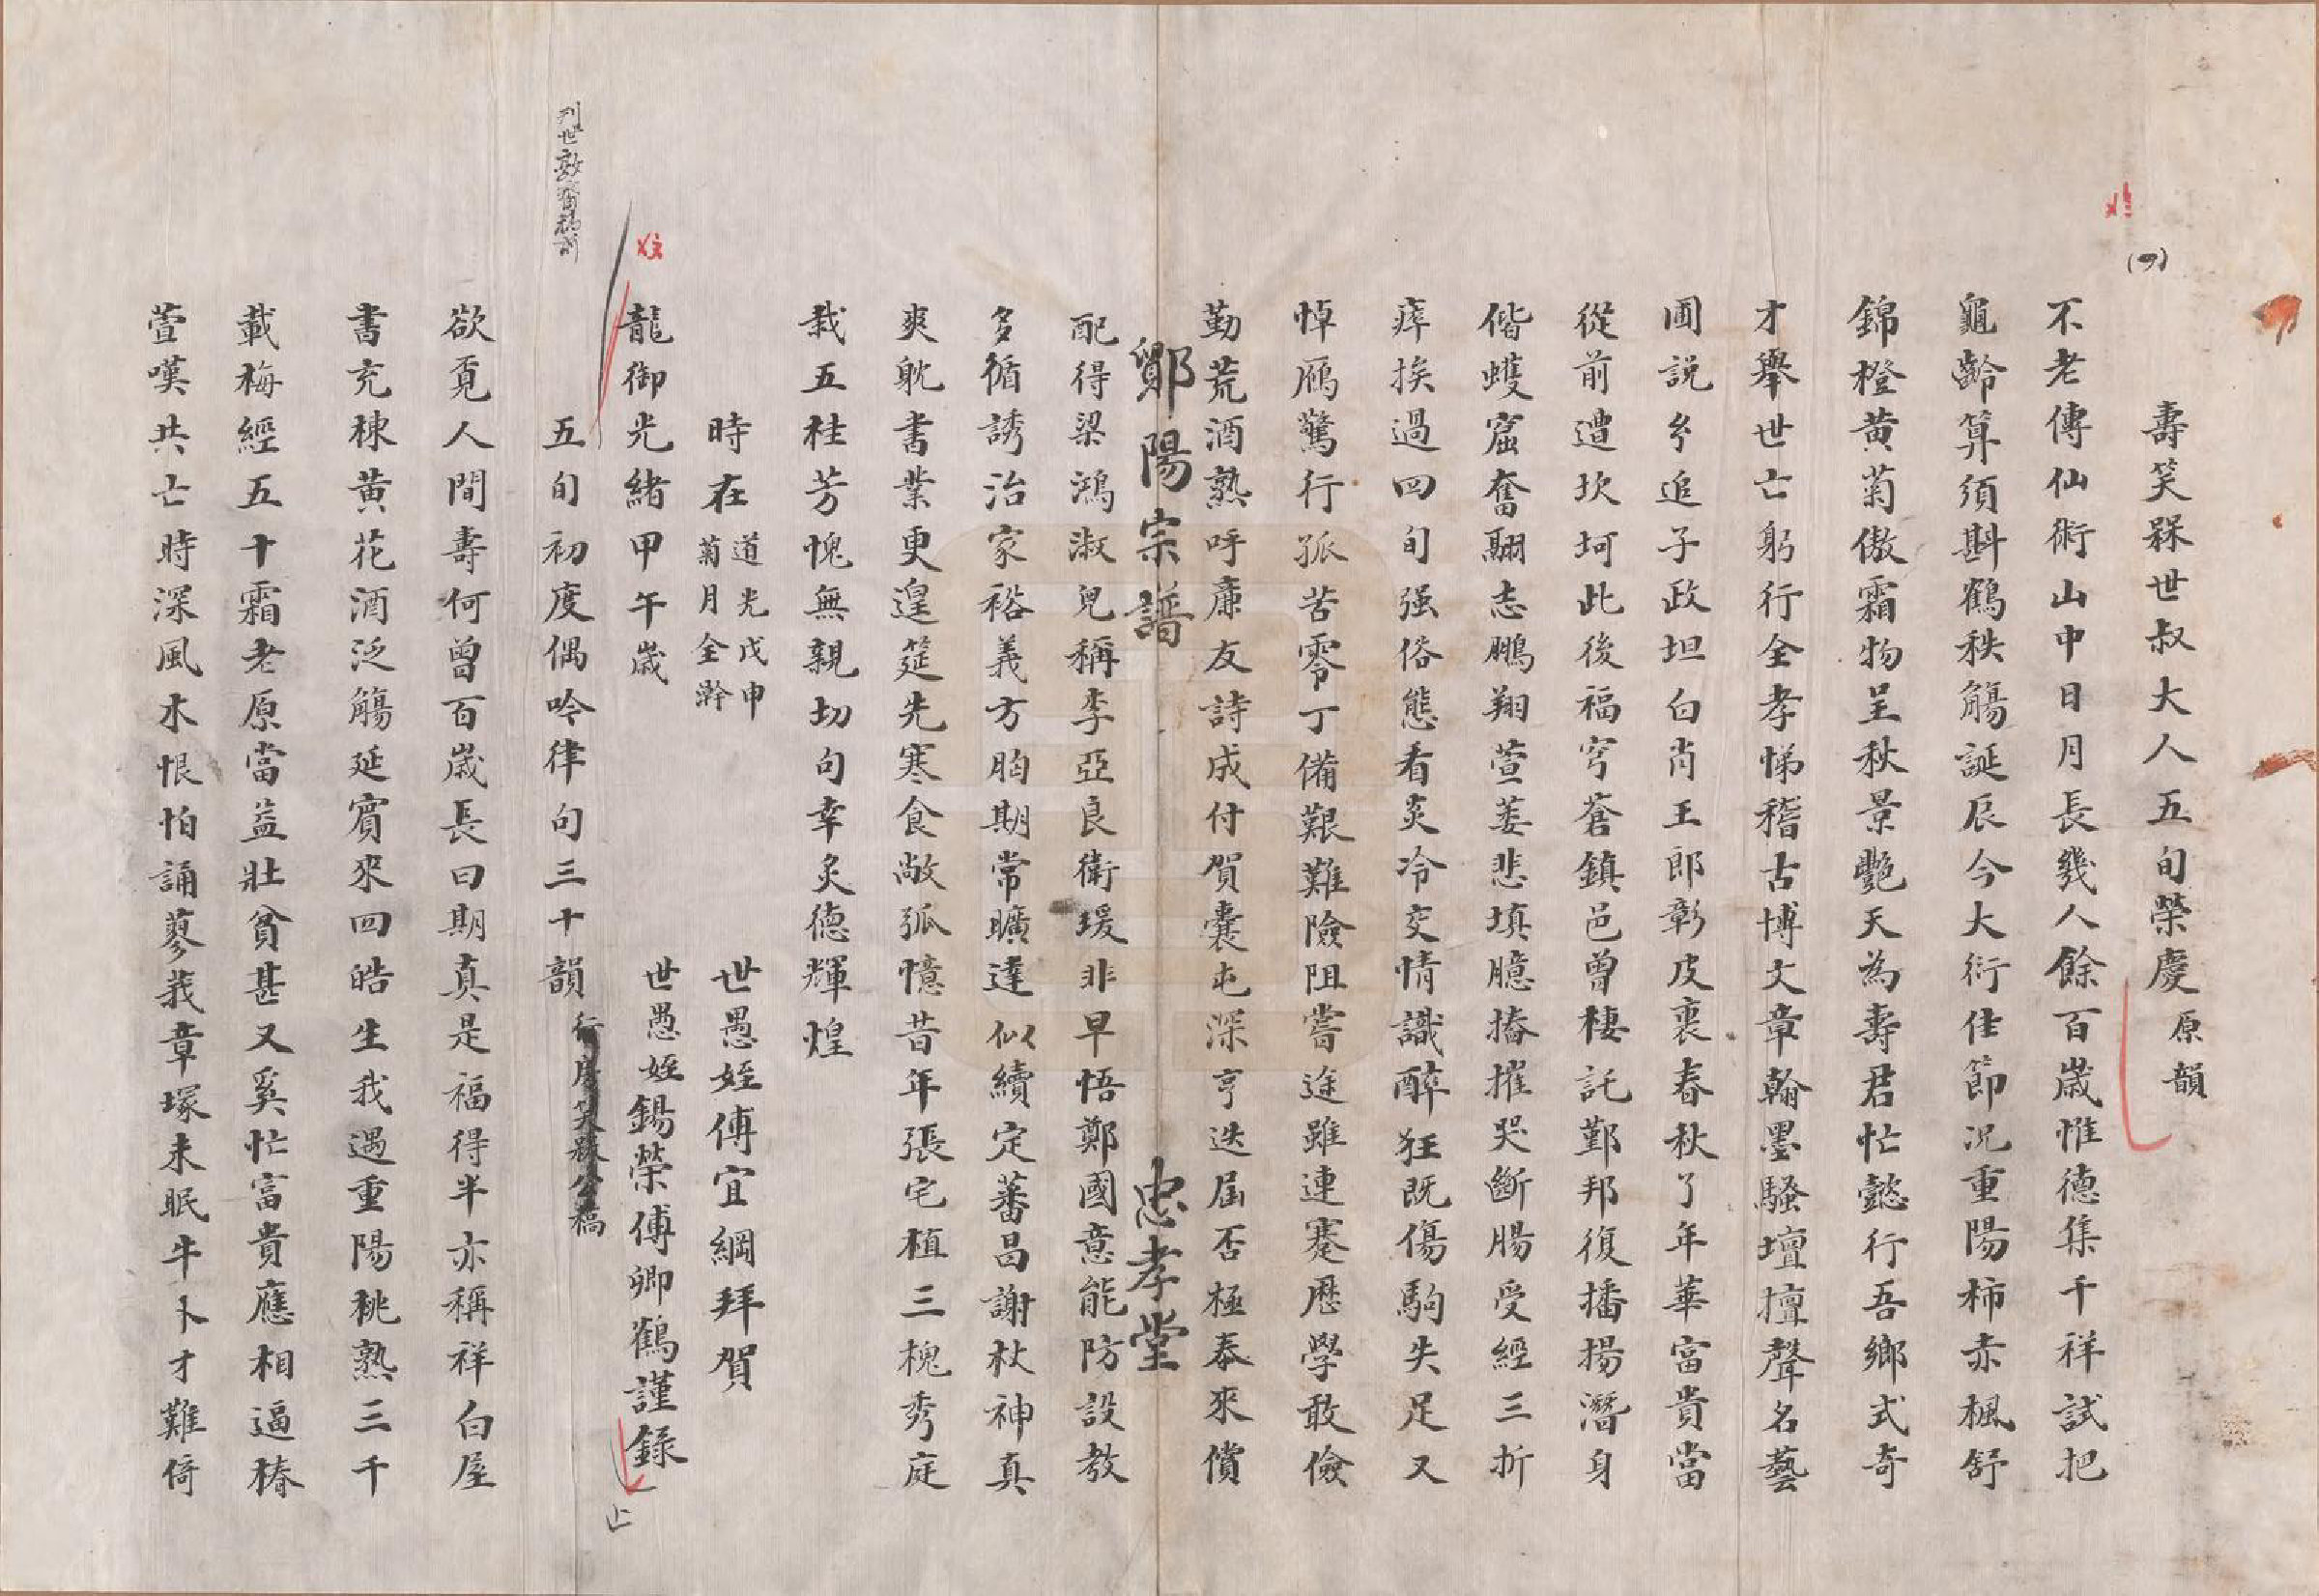 (四)
壽笑槑世叔大人五旬榮慶原韻
不老傳仙術山中日月長幾人餘百歲惟德集千祥試把
龜齡算須斟鶴秩觴誕辰今大衍佳節况重陽柿赤楓舒
錦橙黄菊傲霜物呈秋景艷天為壽君忙懿行吾鄉式奇
才舉世亡躬行全孝悌稽古博文章翰墨騷壇擅聲名藝
圃説乡追子政坦白肖王郎彰皮裏春秋了年華富貴當
從前遭坎坷此後福穹蒼鎮邑曾棲託鄞邦復播揚潛身
偕蠖窟奮翮志鵬翔萱萎悲填臆椿摧哭斷腸受經三折
瘁挨過四旬强俗態看炎冷交情識醉狂既傷駒失足又
悼鴈驚行孤苦零丁備艱難險阻嘗途雖連蹇歷學敢儉
勤荒酒熟呼廉友詩成付賀囊屯深亨迭屆否極泰來償
鄮陽宗譜
忠孝堂
配得梁鴻淑皃稱李亞良衛瑗非早悟鄭國意能防設教
多循誘治家裕義方胸期常曠達似續定蕃昌謝杖神真
爽躭書業更遑筵先寒食敞弧憶昔年張宅植三槐秀庭
栽五桂芳愧無親切句幸炙德輝煌
時在道光戊申菊月全澣
世愚姪傅宜綱拜賀
龍御光緒甲午歲
世愚姪錫榮傅卿鶴謹錄
上
五旬初度偶吟律句三十韻行房笑槑公稿
欲覓人間壽何曾百歲長曰期真是福得半亦稱祥白屋
書充棟黄花酒泛觴延賓來四皓生我遇重陽桃熟三千
載梅經五十霜老原當益壯貧甚又奚忙富貴應相逼椿
萱嘆共亡時深風木恨怕誦蓼莪章塚未眠牛卜才難倚